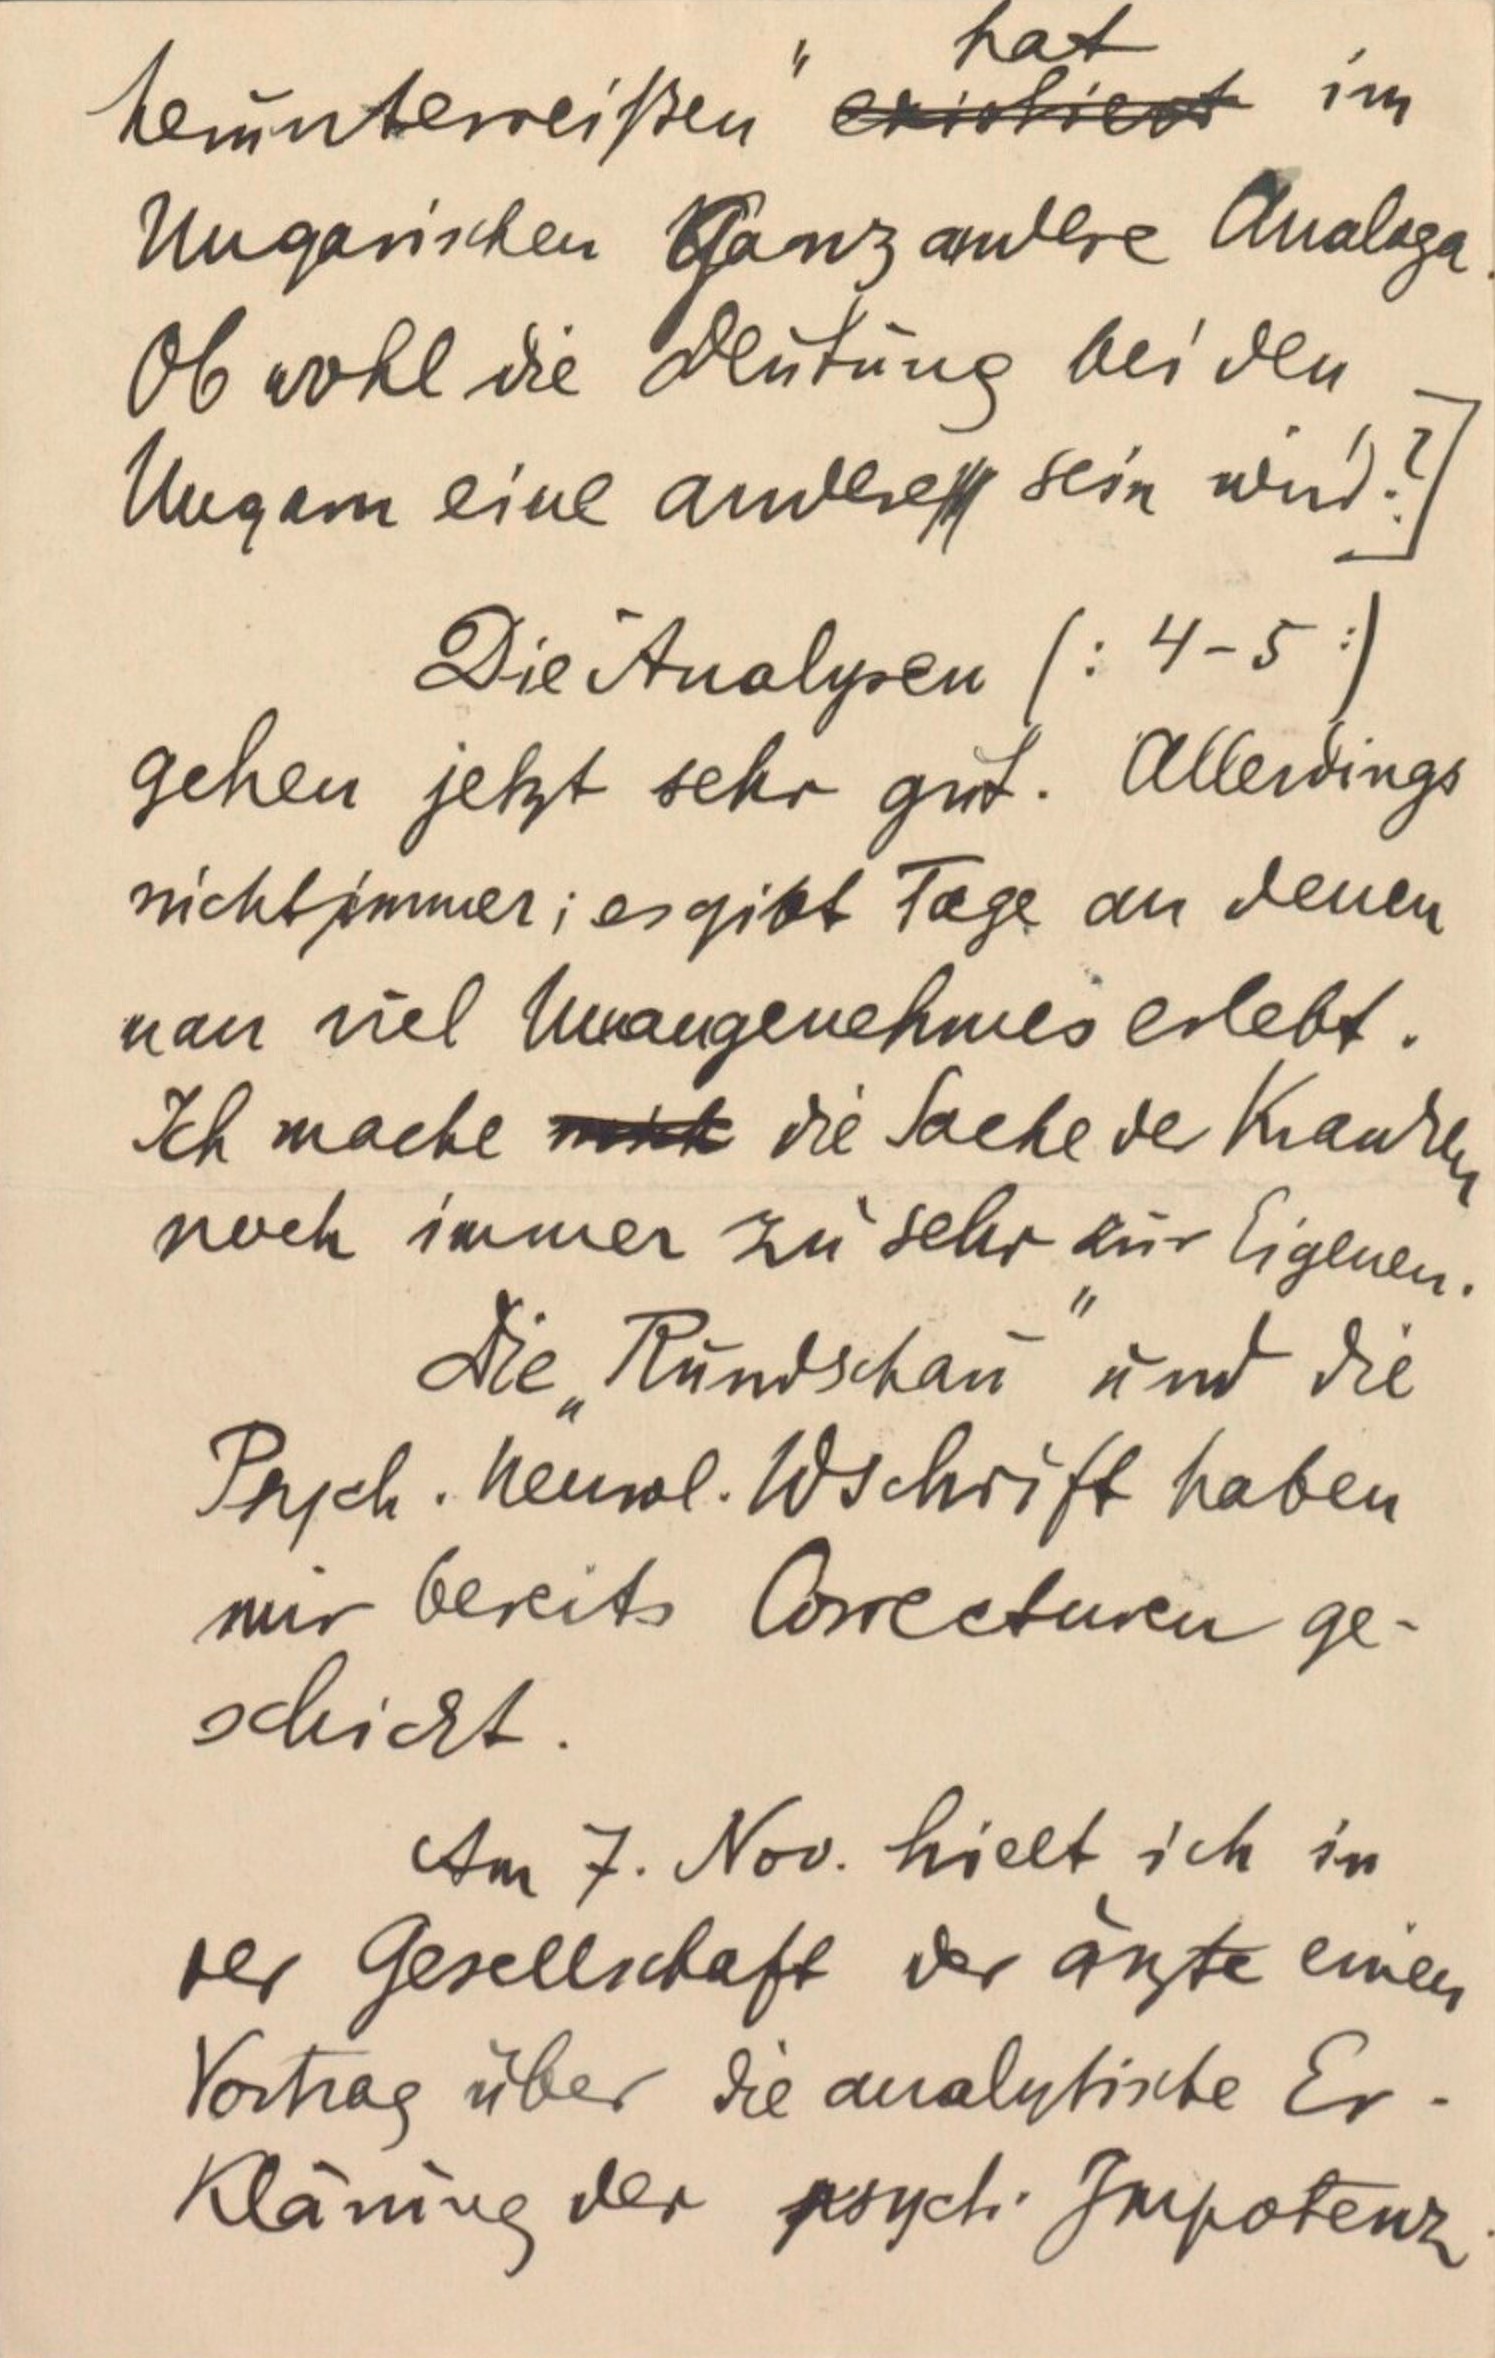 herunterreißen" hat existiert im
Ungarischen Ganz andere Analoga.
Ob wohl die Deutung bei den
Ungarn eine andere sein wird?]
Die Analysen (: 4-5 :)
gehen jetzt sehr gut. Allerdings
nicht immer; es gibt Tage an denen
man viel Unangenehmes erlebt.
Ich mache die Sache der Kranken
noch immer zu sehr zur Eigenen.
Die „Rundschau" und die
Psych. Neurol. Wschrift haben
mir bereits Correcturen ge-
schickt.
Am 7. Nov. hielt ich in
der Gesellschaft der ärzte einen
Vortrag über die analytische Er-
klärung der psych. Impotenz.